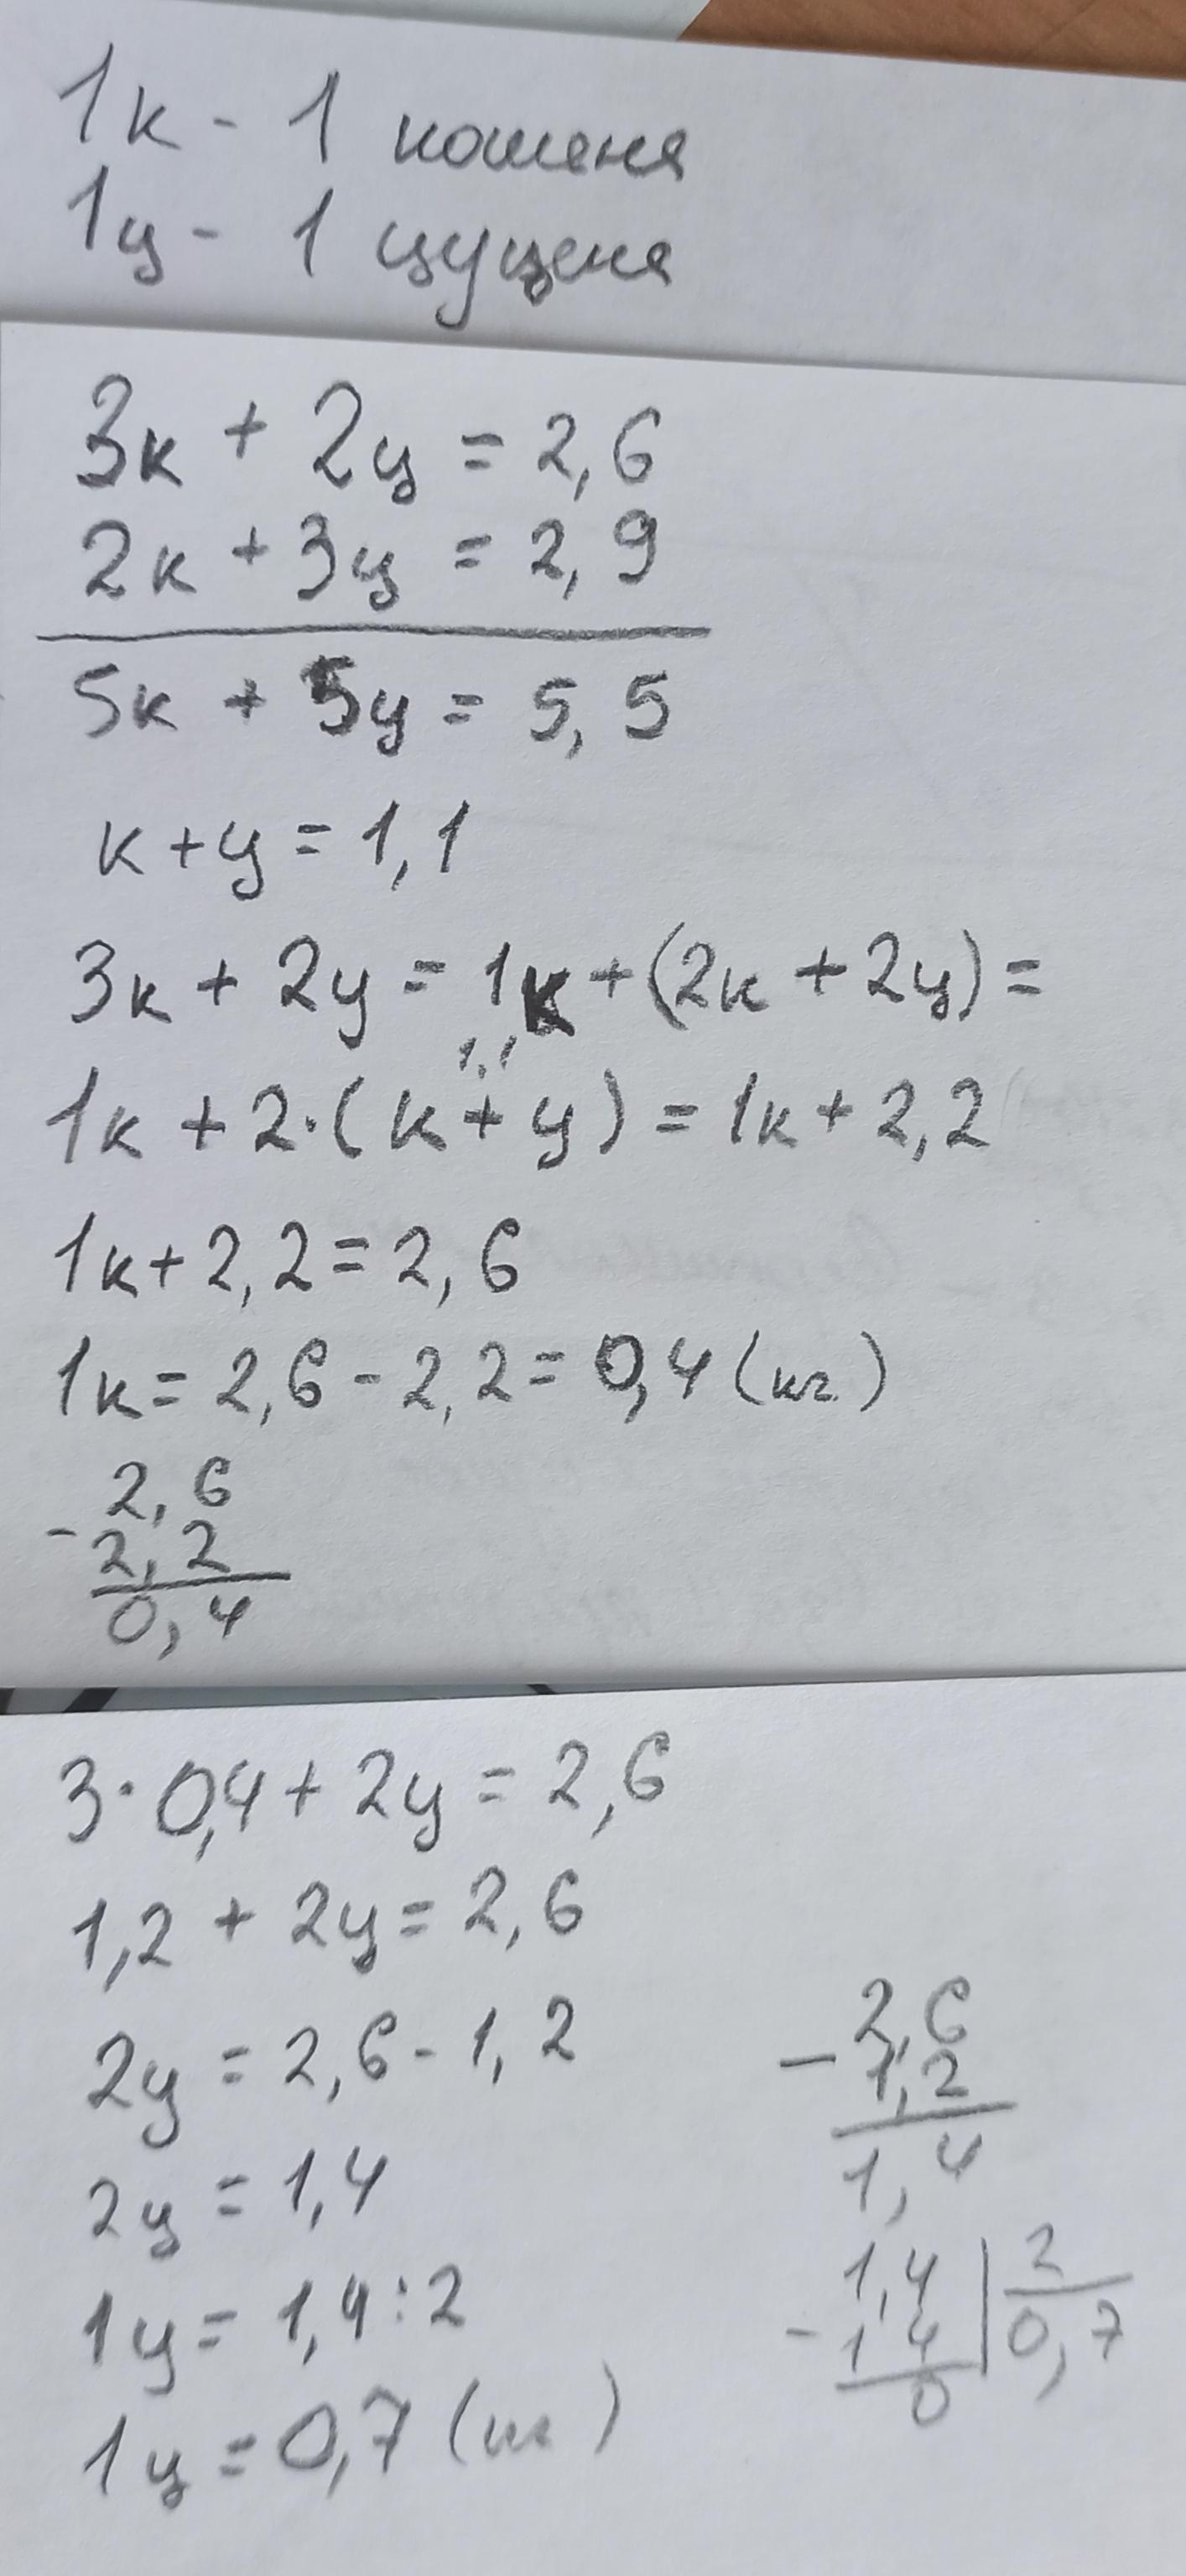 1к - 1 кошеня
1ц - 1 цуценя
3к + 2ц = 2,6
2к + 3ц = 2,9
5к + 5ц = 5,5
к+ц = 1,1
3к + 2ц = 1к+(2к + 2ц) =
1,1
1к + 2·(к + ц) = 1к + 2,2
1к+2,2=2,6
1к= 2,6 - 2,2= 0,4 (кг)
2,6
- 2,2
0,4
3·0,4 + 2ц = 2,6
1,2 + 2ц= 2,6
2ц = 2,6 - 1,2
2,6
- 1,2
1,4
2ц = 1,4
1ц = 1,4:2
1,4 | 2
- 1 4 | 0,7
0
1ц = 0,7 (кг)